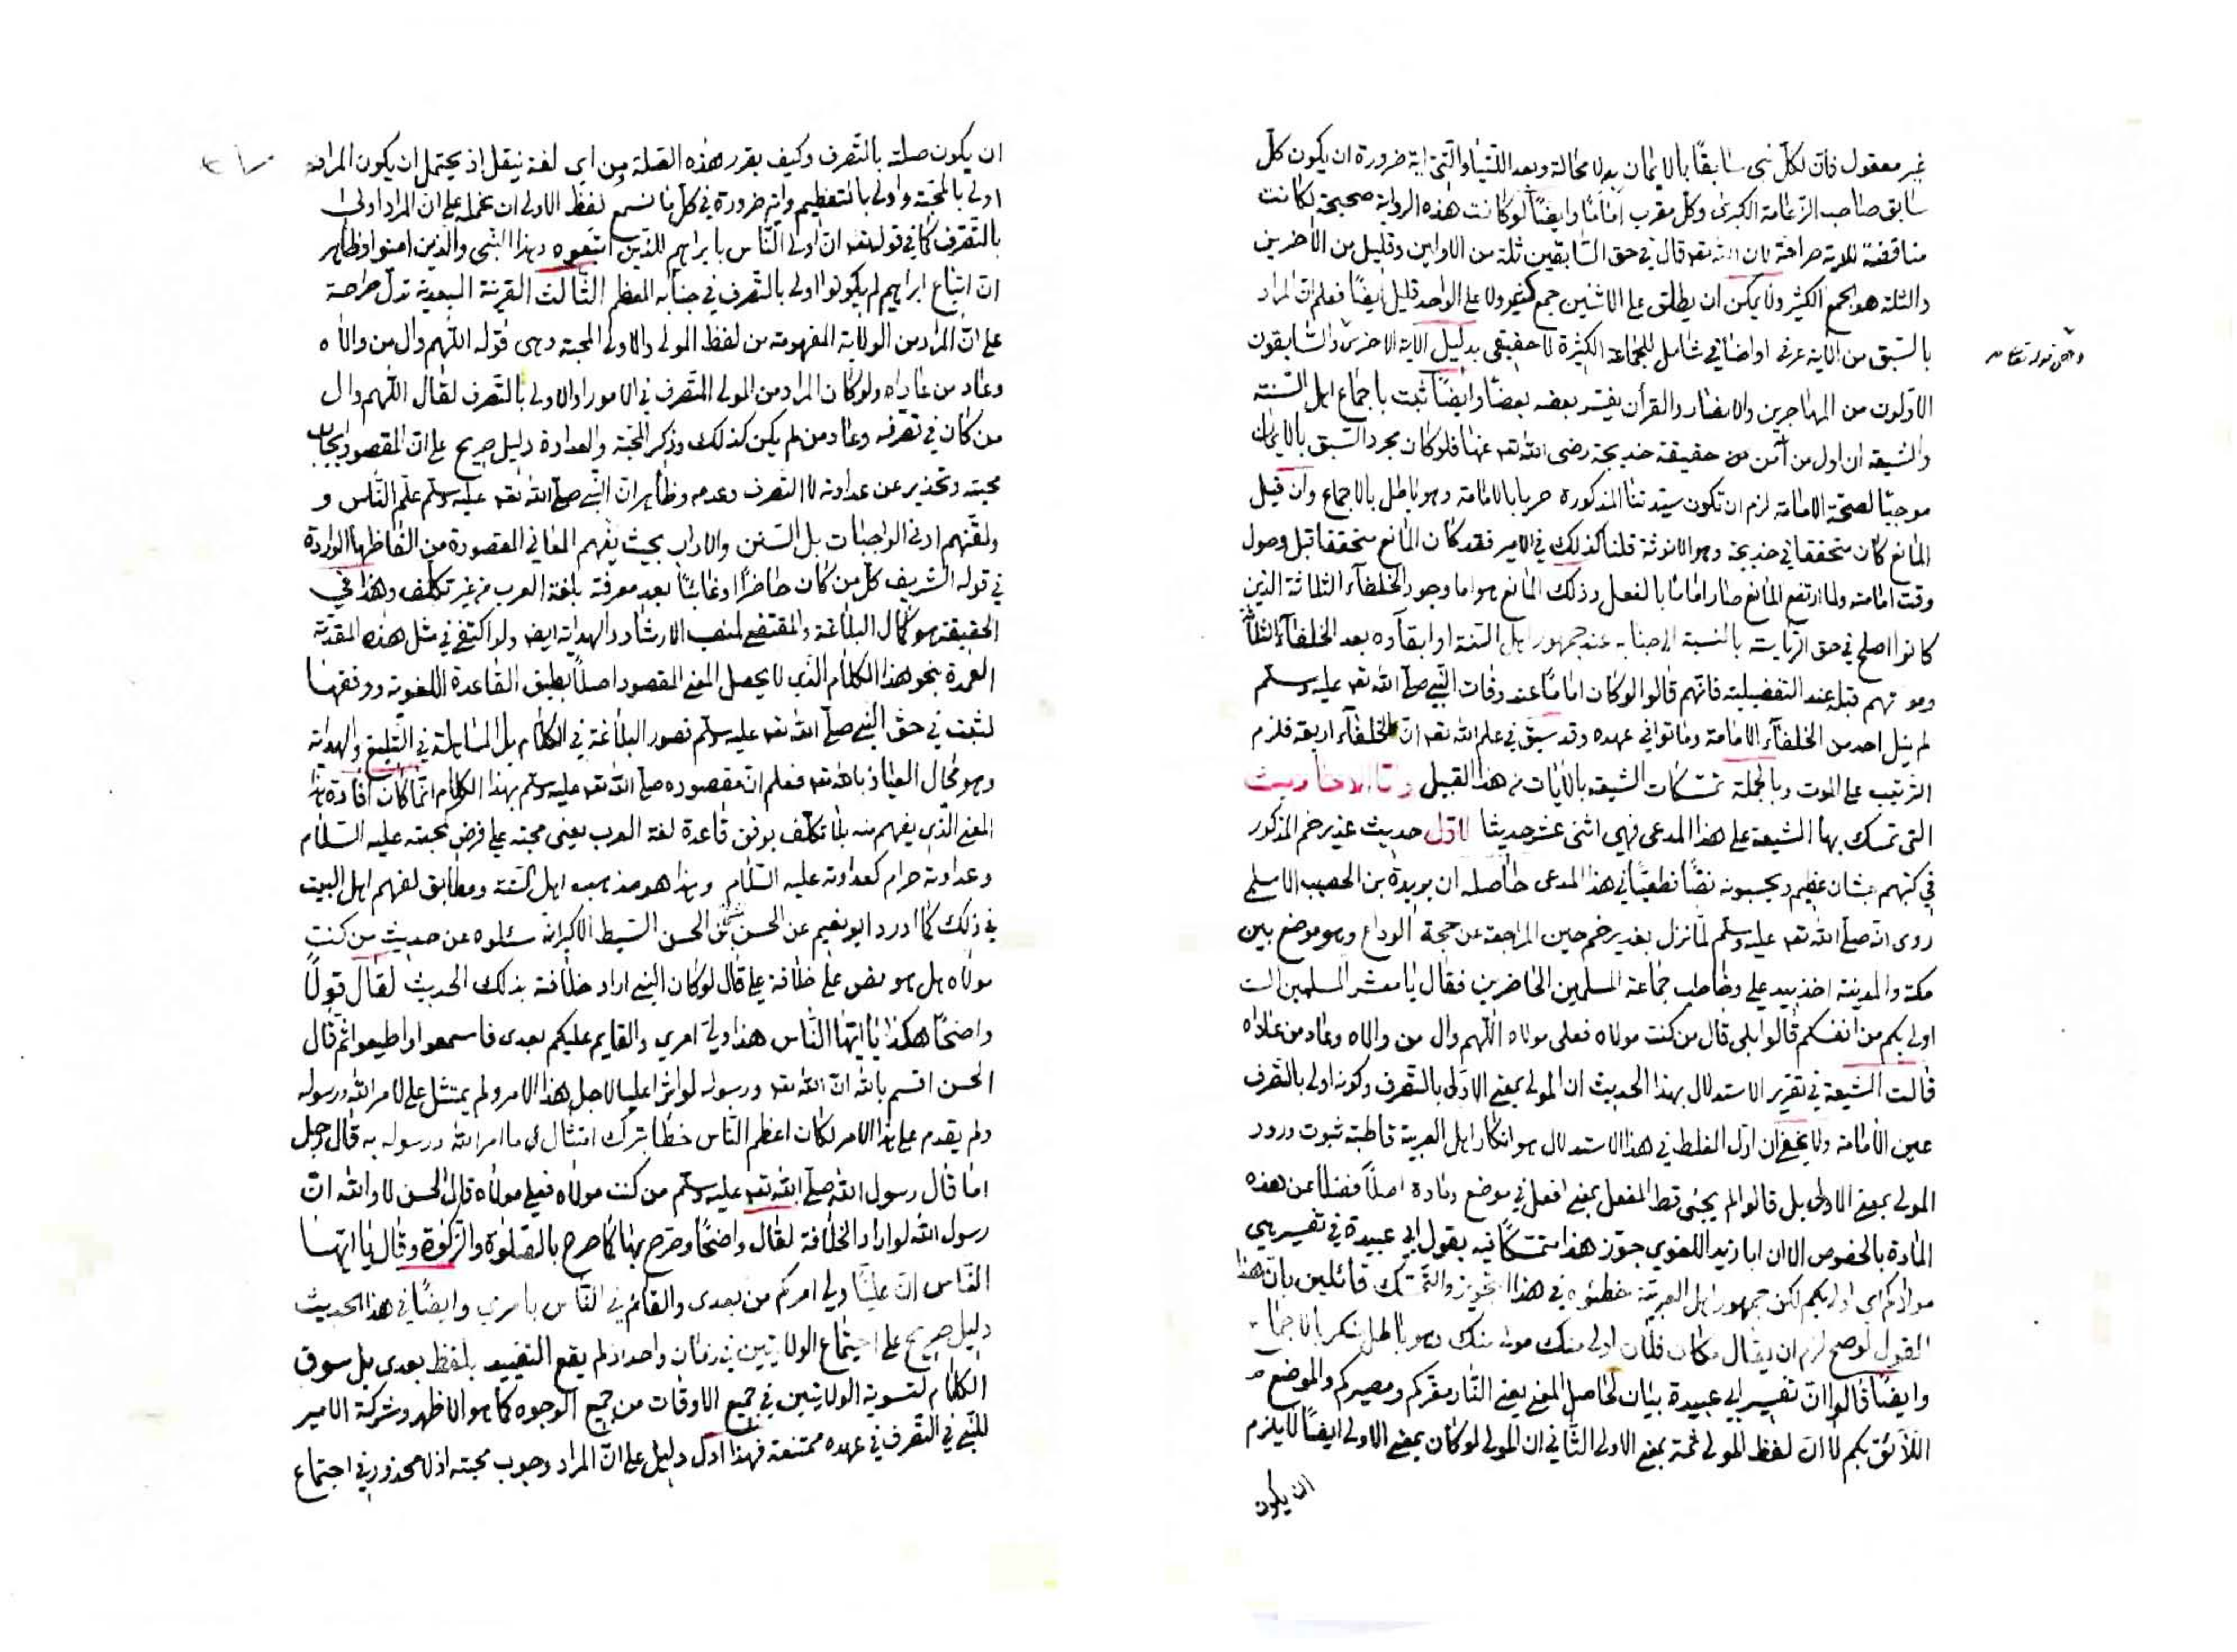 غير معقول فان لكل نبي سابقًا بالايمان به لا محالة وبعد اللتيا والتي اية ضرورة ان يكون كل
سابق صاحب الزعامة الكبرى وكل مقرب امامًا وايضًا لو كانت هذه الرواية صحيحة لكانت
مناقضة للاية صراحة لان الله تعه قال في حق السابقين ثلة من الاولين وقليل من الاخرين
والثلة هو الجمع الكثير ولا يمكن ان يطلق على الاثنين جمع كثير ولا على الواحد قليل ايضًا فعلم ان المراد
بالسبق من الاية عرفي او اضافي شامل للجماعة الكثيرة لا حقيقي بدليل الاية الاخرى والسابقون
وهي قوله تعالى
الاولون من المهاجرين والانصار والقرآن يفسر بعضه بعضًا وايضًا ثبت باجماع اهل السنة
والشيعة ان اول من آمن من حقيقة خديجة رضى الله تعه عنها فلو كان مجرد السبق بالايمان
موجبًا لصحة الامامة لزم ان تكون سيدتنا المذكورة حريا بالامامة وهو باطل بالاجماع وان قيل
المانع كان متحققا في خديجة وهو الانوثة قلنا كذلك في الامير فقد كان المانع متحققا قبل وصول
وقت امامته ولما ارتفع المانع صار امامًا بالفعل وذلك المانع هو اما وجود الخلفآء الثلاثة الذين
كانوا اصلح في حق الرياسة بالنسبة الى جنابه عند جمهور اهل السنة او ابقآءه بعد الخلفآء الثلاثة
وموتهم قبله عند التفضيلية فانهم قالوا لو كان امامًا عند وفات النبي صلى الله تعه عليه وسلم
لم ينل احد من الخلفآء الامامة وماتوا في عهده وقد سبق في علم الله تعه ان الخلفآء اربعة فلزم
الترتيب على الموت وبالجملة تمسكات الشيعة بالآيات من هذا القبيل واما الاحاديث
التي تمسك بها الشيعة على هذا المدعى فهي اثنى عشر حديثا الاول حديث غدير خم المذكور
في كتبهم بشان عظيم ويحسبونه نصًا قطعيًا في هذا المدعى حاصله ان بريدة بن الحصيب الاسلمي
روى انه صلى الله تعه عليه وسلم لما نزل بغدير خم حين المراجعة عن حجة الوداع وهو موضع بين
مكة والمدينة اخذ بيد علي وخاطب جماعة المسلمين الحاضرين فقال يا معشر المسلمين الست
اولى بكم من انفسكم قالوا بلى قال من كنت مولاه فعلى مولاه اللهم وال من والاه وعاد من عاداه
قالت الشيعة في تقرير الاستدلال بهذا الحديث ان المولى بمعنى الاولى بالتصرف وكونه اولى بالتصرف
عين الامامة ولا يخفى ان اول الغلط في هذا الاستدلال هو انكار اهل العربية قاطبة ثبوت ورود
المولى بمعنى الاولى بل قالوا لم يجئ قط المفعل بمعنى افعل في موضع ومادة اصلاً فضلاً عن هذه
المادة بالخصوص الا ان ابا زيد اللغوي جوز هذا متمسكًا فيه بقول ابي عبيدة في تفسير هي
مولاكم اي اولى بكم لكن جمهور اهل العربية خطئوه في هذا التجويز والتمسك قائلين بان هذا
القول لو صح لزم ان يقال مكان فلان اولى منك مولى منك وهو باطل منكر بالاجماع
وايضًا قالوا ان تفسير ابي عبيدة بيان لحاصل المعنى يعني النار مقركم ومصيركم والموضع
اللائق بكم لا ان لفظ المولى ثمة بمعنى الاولى الثاني ان المولى لو كان بمعنى الاولى ايضًا لا يلزم
ان يكون
ان يكون صلته بالتصرف وكيف يقرر هذه الصلة من اي لغة ينقل اذ يحتمل ان يكون المراد
اولى بالمحبة واولى بالتعظيم واية ضرورة في كل ما نسمع لفظ الاولى ان نحمله على ان المراد اولى
بالتصرف كما في قوله تعه ان اولى الناس بابراهيم للذين اتبعوه وهذا النبي والذين امنوا وظاهر
ان اتباع ابراهيم لم يكونوا اولى بالتصرف في جنابه المعظم الثالث القرينة البعدية تدل صراحة
على ان المراد من الولاية المفهومة من لفظ المولى والاولى المحبة وهى قوله اللهم وال من والاه
وعاد من عاداه ولو كان المراد من المولى المتصرف في الامور او الاولى بالتصرف لقال اللهم وال
من كان في تصرفه وعاد من لم يكن كذلك وذكر المحبة والعداوة دليل صريح على ان المقصود ايجاب
محبته وتحذير عن عداوته لا التصرف وعدمه وظاهر ان النبي صلى الله تعه عليه وسلم علم الناس و
ولقنهم ادنى الواجبات بل السنن والاداب بحيث يفهم المعاني المقصودة من الفاظها الواردة
في قوله الشريف كل من كان حاضرًا او غائبًا بعد معرفة بلغة العرب من غير تكلف وهذا في
الحقيقة هو كمال البلاغة والمقتضى لمنصب الارشاد والهداية ايضا ولو اكتفى في مثل هذه المقدمة
العمدة بنحو هذا الكلام الذي لا يحصل المعنى المقصود اصلاً بطبق القاعدة اللغوية ووفقها
لثبت في حق النبي صلى الله تعه عليه وسلم قصور البلاغة في الكلام بل المساهلة في التبليغ والهداية
وهو محال العياذ بالله تعه فعلم ان مقصوده صلى الله تعه عليه وسلم بهذا الكلام انما كان افادة هذا
المعنى الذي يفهم منه بلا تكلف بوفق قاعدة لغة العرب يعنى محبة علي فرض كمحبته عليه السلام
وعداوته حرام كعداوته عليه السلام وهذا هو مذهب اهل السنة ومطابق لفهم اهل البيت
في ذلك كما اورد ابو نعيم عن الحسن المثنى بن الحسن السبط الاكبر انه سئلوه عن حديث من كنت
مولاه هل هو نص على خلافة علي قال لو كان النبي اراد خلافته بذلك الحديث لقال قولًا
واضحًا هكذا يا ايها الناس هذا ولي امري والقايم عليكم بعدى فاسمعوا واطيعوا ثم قال
الحسن اقسم بالله ان الله تعه ورسوله لو اثرا عليا لاجل هذا الامر ولم يمتثل على لامر الله ورسوله
ولم يقدم على هذا الامر لكان اعظم الناس خطأ بترك امتثال ما امر الله ورسوله به قال رجل
اما قال رسول الله صلى الله تعه عليه وسلم من كنت مولاه فعلي مولاه قال الحسن لا والله ان
رسول الله لو اراد الخلافة لقال واضحًا وصرح بها كما صرح بالصلوة والزكوة وقال يا ايها
الناس ان عليًا ولي امركم من بعدى والقائم في الناس بامرى وايضًا في هذا الحديث
دليل صريح على اجتماع الولايتين في زمان واحد اذ لم يقع التقييد بلفظ بعدى بل سوق
الكلام لتسوية الولايتين في جميع الاوقات من جميع الوجوه كما هو الاظهر وشركة الامير
للنبي في التصرف في عهده ممتنعة فهذا ادل دليل على ان المراد وجوب محبته اذ لا محذور في اجتماع